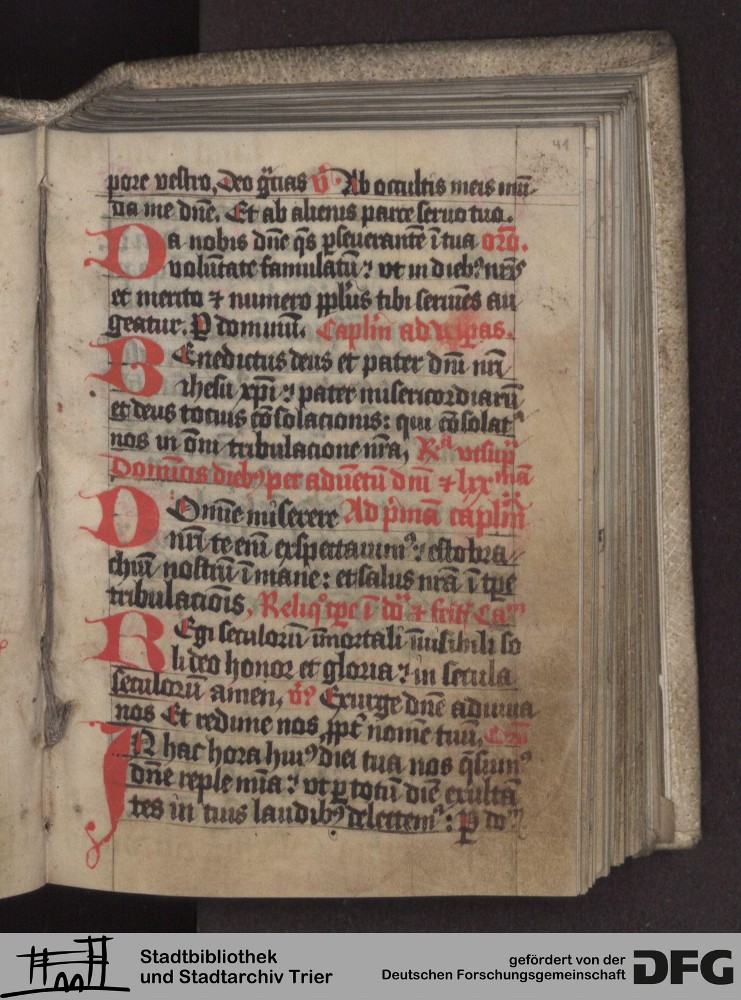 41
pore vestro, Deo gr̃cias v̉. Ab occultis meis mũ-
da me dñe. Et ab alienis parce seruo tuo.
Da nobis dñe q̃s p̱seuerantẽ ĩ tua orõ.
volũtate famulatũ : vt in dieb⁹ nr̃is
et merito ⁊ numero ppl̃us tibi seruiẽs au
geatur. P̱ dominũ. Caplm̃ ad vesp̱as.
Benedictus deus et pater dñi nr̃i
ihesu xp̃i : pater misericordiarũ
et deus tocius cõsolacionis : qui cõsolat͛
nos in õni tribulacione nr̃a,
Dominicis dieb⁹ per aduẽtũ dñi ⁊ lxxᵐᵃ̃
Domine miserere Ad p̃mã caplm̃
nr̃i te eni᷒ exspectauim⁹ : esto bra
chiũ nostrũ ĩ mane : et salus nr̃a ĩ tp̃e
tribulaciõis, Reliq⁰ tp̃e ĩ dõ ⁊ festis Caᵐ
Regi seculorũ ĩmortali ĩuisibili so
li deo honor et gloria : in secula
seculorũ amen, v̉ Exurge dñe adiuua
nos Et redime nos, ppt̃ nomẽ tuũ,
IN hac hora hui⁹ diei tua nos q̃sum⁹
dñe reple mĩa : vt p̱ totũ diẽ exultã
tes in tuis laudib⁹ delectem͛ : P̱ doᵐ
Stadtbibliothek
und Stadtarchiv Trier
gefördert von der
Deutschen Forschungsgemeinschaft
DFG